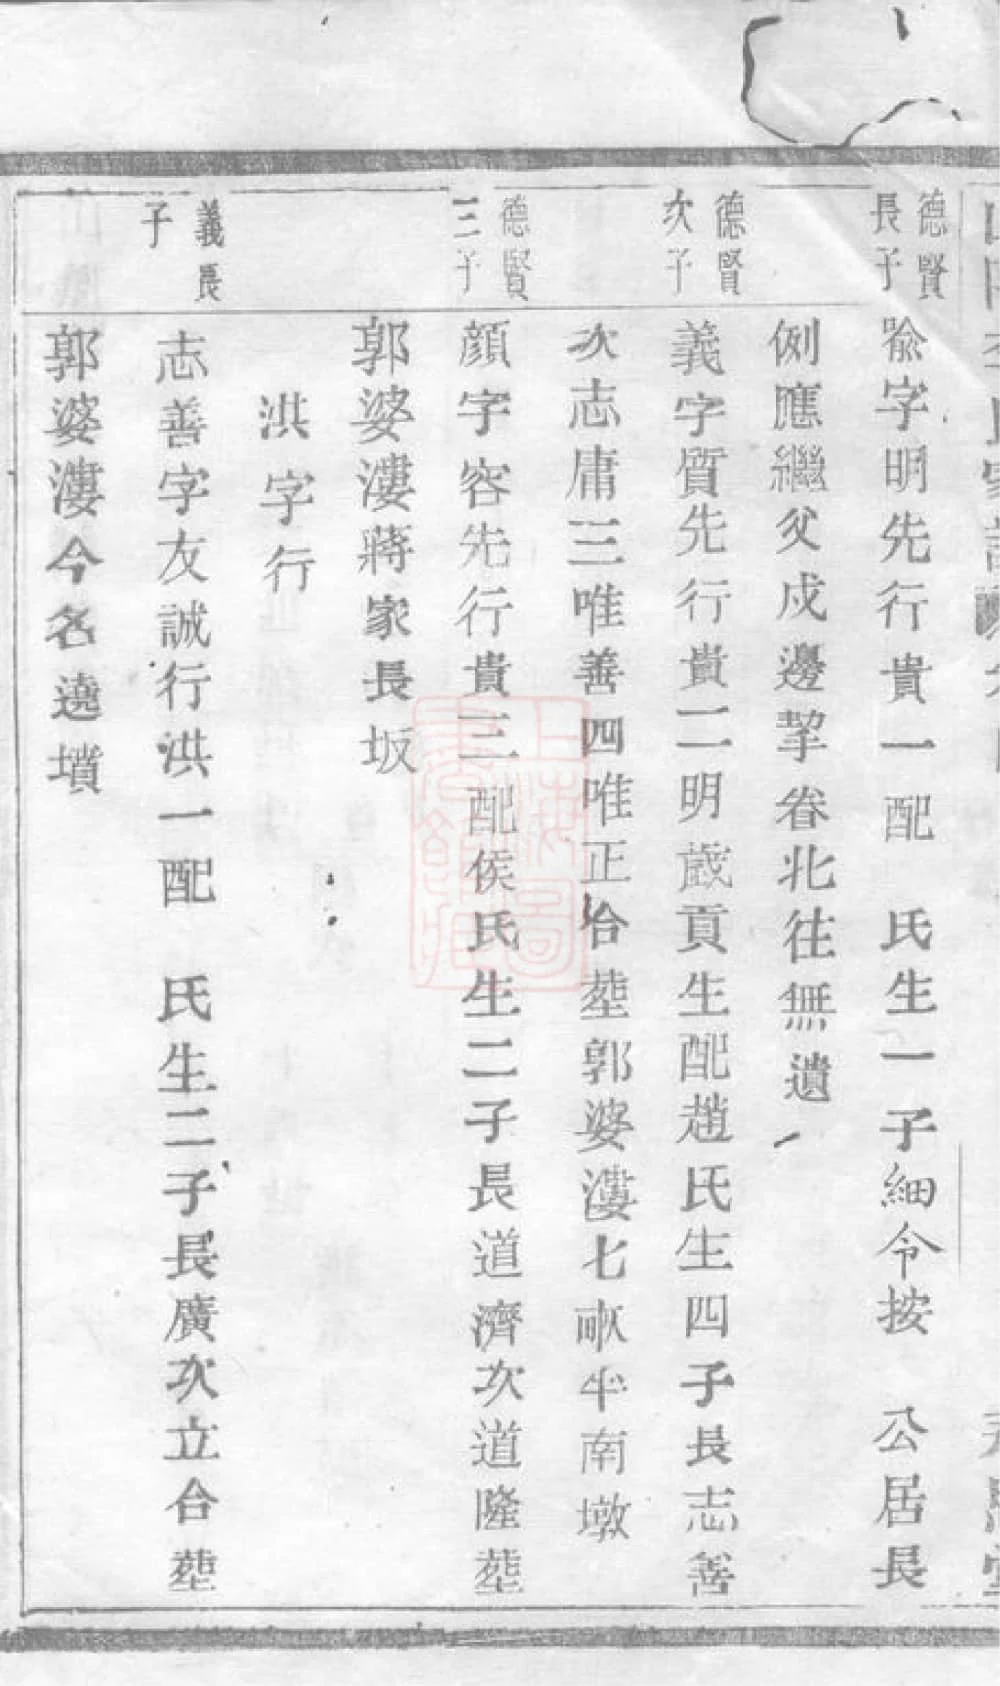 德賢
長子
㒷字明先行貴一配　氏生一子細令按　公居長
例應繼父戍邊挈眷北往無遺
德賢
次子
義字質先行貴二明歲貢生配趙氏生四子長志善
次志庸三唯善四唯正合塟郭婆漊七畝半南墩
德賢
三子
顔字容先行貴三配侯氏生二子長道濟次道隆塟
郭婆漊蔣家長坂
洪字行
義長
子
志善字友誠行洪一配　氏生二子長廣次立合塟
郭婆漊今名遶墳
上海圖書館藏